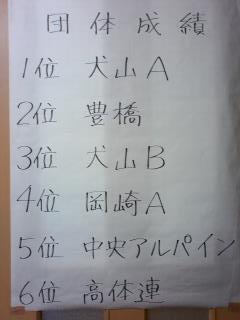 団体成績
1位 犬山A
2位 豊橋
3位 犬山B
4位 岡崎A
5位 中央アルパイン
6位 高体連